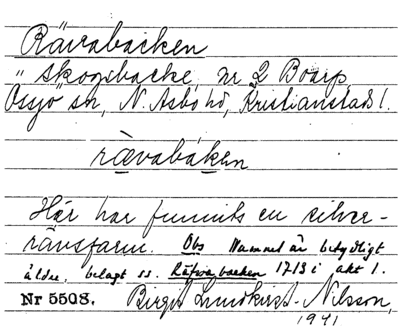 Rävabacken
" skogsbacke, nr 2 Boarp
Össjö" sn, N. Åsbo hd, Kristianstads l.
rævabáken
Här har funnits en silver-
rävsfarm. Obs Namnet är betydligt
äldre, belagt ss. Räfwabacken 1713 i akt 1.
Nr 5508. Birgit Lundkvist-Nilsson,
1941